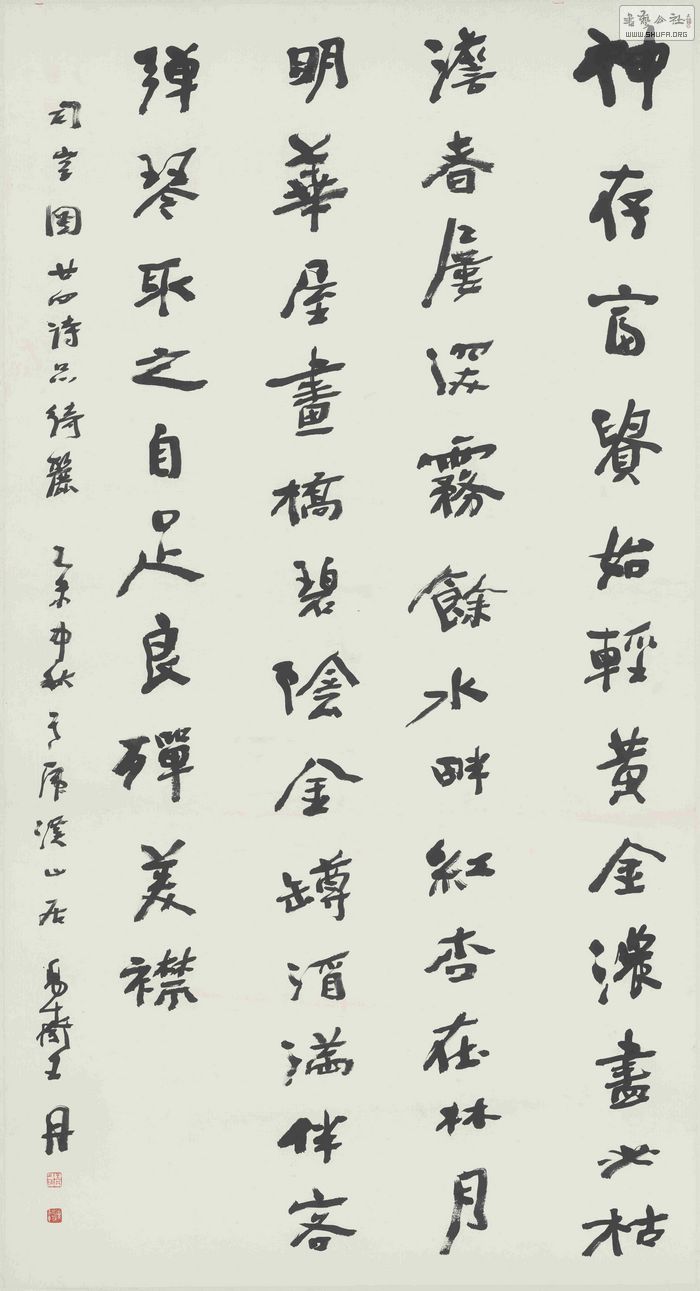 書藝公社
WWW.SHUFA.ORG
神存富貴始輕黃金濃盡必枯
澹者屢深霧餘水畔紅杏在林月
明華屋畫橋碧陰金罇酒滿伴客
彈琴取之自足良殫美襟
司空圖廿四詩品綺麗 乙未中秋于虎溪山居 王丹